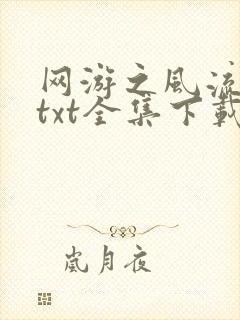 网游之风流
txt全集下载
岚月夜